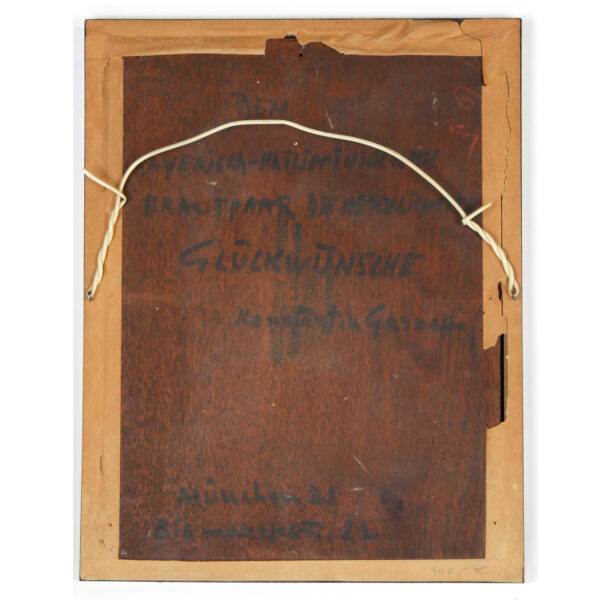 DEM
BAYERISCH-PHILIPINISCHEN
BRAUTPAAR DIE HERZLICHSTEN
GLÜCKWÜNSCHE
Konstantin Garneff
München 21
Bismarckstr. 22
900,-